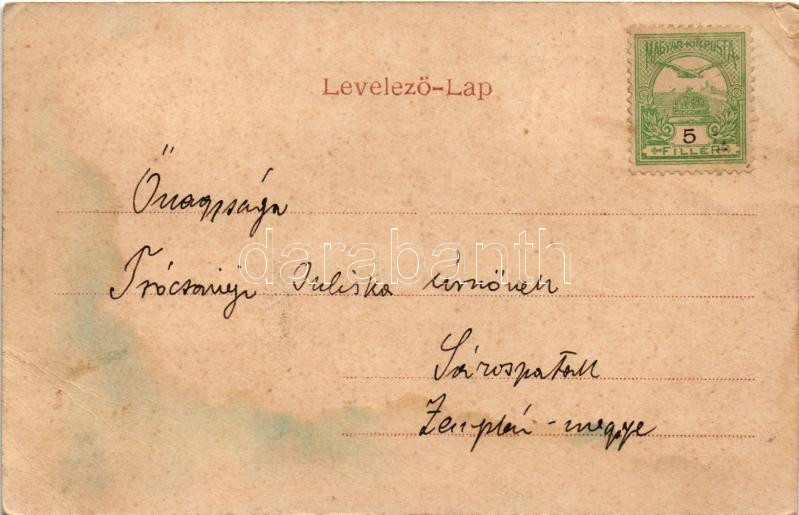 Levelező-Lap
MAGYAR KIR. POSTA
5
FILLÉR
Őnagysága
Trócsányi Juliska úrnőnek
darabanth
Sárospatak
Zemplén-megye